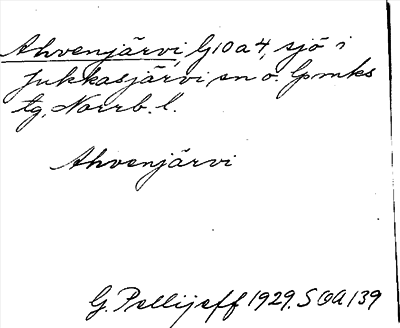 Ahvenjärvi, G10a4, sjö i
Jukkasjärvi, sn o. lpmks
tg, Norrb. l.
Ahvenjärvi
G. Pellijeff 1929. SOA 139